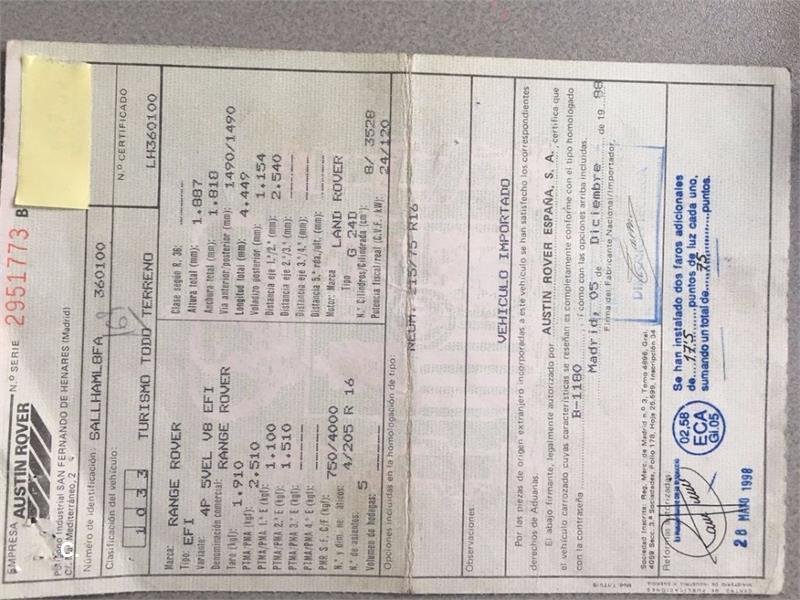 EMPRESA
AUSTIN ROVER
N.º SERIE
2951773 B
Polígono Industrial SAN FERNANDO DE HENARES (Madrid)
C/. Mar Mediterráneo, 2
Número de identificación: SALLHAML8FA 360100
N.º CERTIFICADO
LH360100
Clasificación del vehículo:
1033 TURISMO TODO TERRENO
Marca: RANGE ROVER
Tipo: EFI
Variante: 4P 5VEL V8 EFI
Denominación comercial: RANGE ROVER
Tara (kgf): 1.910
PTMA/PMA (kgf): 2.510
PTMA/PMA 1.º E (kgf): 1.100
PTMA/PMA 2.º E (kgf): 1.510
PTMA/PMA 3.º E (kgf): -------
PTMA/PMA 4.º E (kgf): -------
PMR S/F, C/F (kgf): 750/4000
N.º y dim. neumáticos: 4/205 R 16
N.º de asientos: 5
Volumen de bodegas:
Clase según R. 36: -------
Altura total (mm): 1.887
Anchura total (mm): 1.818
Vía anterior/posterior (mm): 1490/1490
Longitud total (mm): 4.449
Voladizo posterior (mm): 1.154
Distancia eje 1.º/2.º (mm): 2.540
Distancia eje 2.º/3.º (mm): -------
Distancia eje 3.º/4.º (mm): -------
Distancia 5.ª rda./ult. (mm): -------
Motor: Marca LAND ROVER
Tipo G 24D
N.º Cilindros/Cilindrada (cm³): 8/ 3528
Potencia fiscal/real (C.V.F./kW): 24/120
Opciones incluidas en la homologación de tipo:
NEUM. 215/75 R16
Observaciones:
VEHICULO IMPORTADO
Por las piezas de origen extranjero incorporadas a este vehículo se han satisfecho los correspondientes
derechos de Aduanas.
El abajo firmante, legalmente autorizado por AUSTIN ROVER ESPAÑA, S. A., certifica que
el vehículo carrozado, cuyas características se reseñan es completamente conforme con el tipo homologado
con la contraseña B-1180, así como con las opciones arriba incluidas.
Madrid, 05 de Diciembre de 19 88
Firma del Fabricante Nacional/Importador,
Sociedad Inscrita: Reg. Merc. de Madrid n.º 3, Tomo 4896, Gral.
4099 Secc. 3.ª Sociedades, Folio 178, Hoja 26.599, Inscripción 34
Reformas autorizadas:
28 MAYO 1998
02,58
ECA
GI.05
Se han instalado dos faros adicionales
de 17,5 puntos de luz cada uno,
sumando un total de 75 puntos.